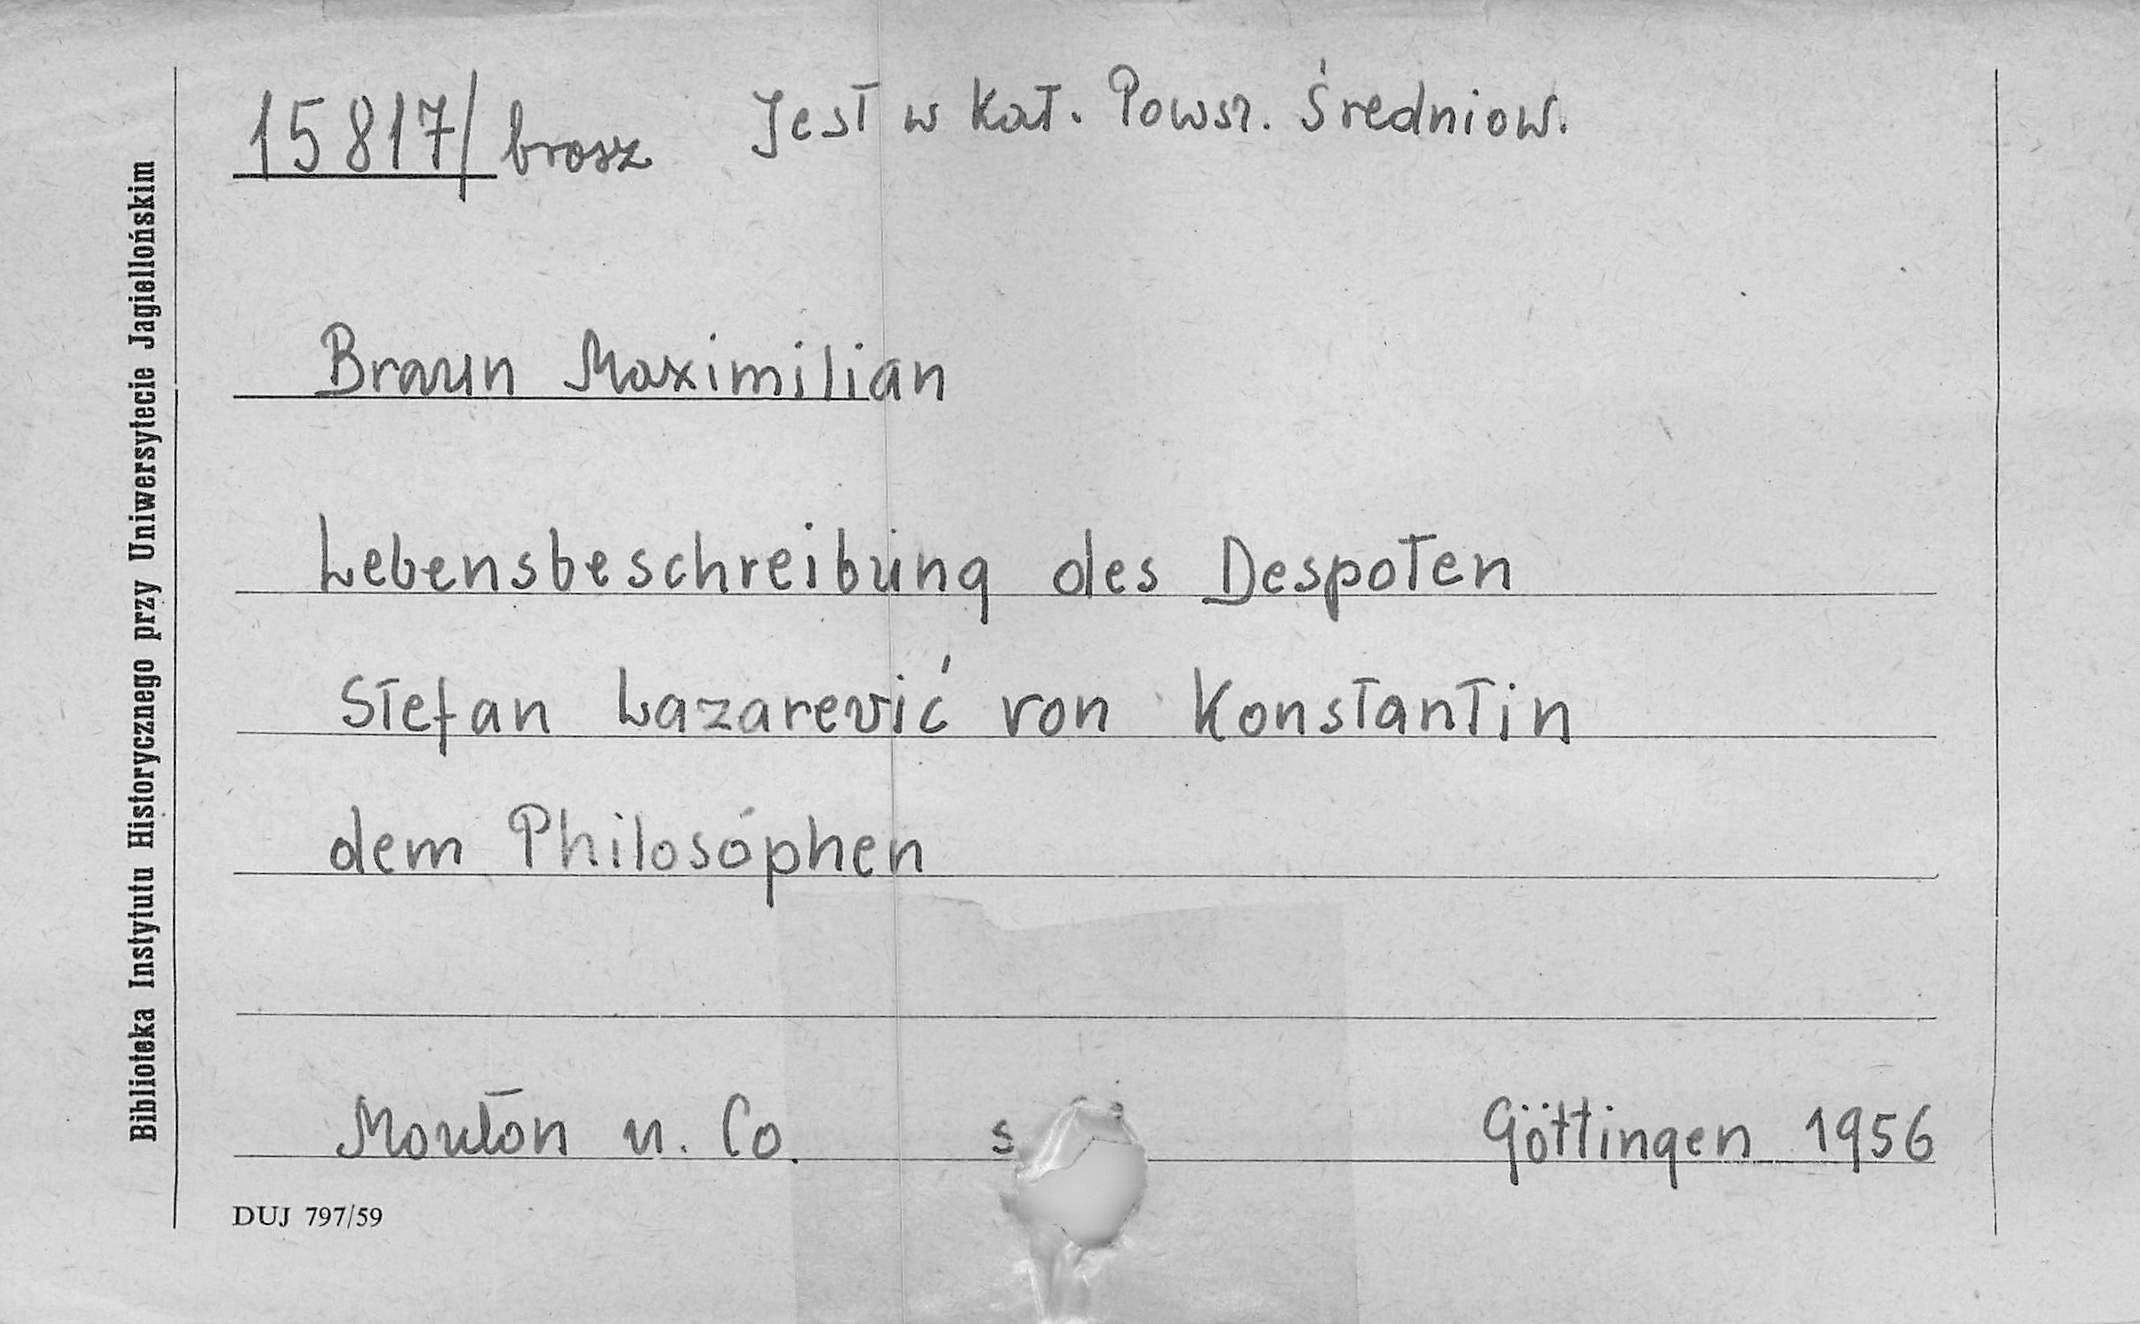 15817/brosz Jest w Kat. Powsz. Średniow.
Braun Maximilian
Lebensbeschreibung des Despoten
Stefan Lazarević von Konstantin
dem Philosophen
Mouton u. Co. s Göttingen 1956
DUJ 797/59
Biblioteka Instytutu Historycznego przy Uniwersytecie Jagiellońskim